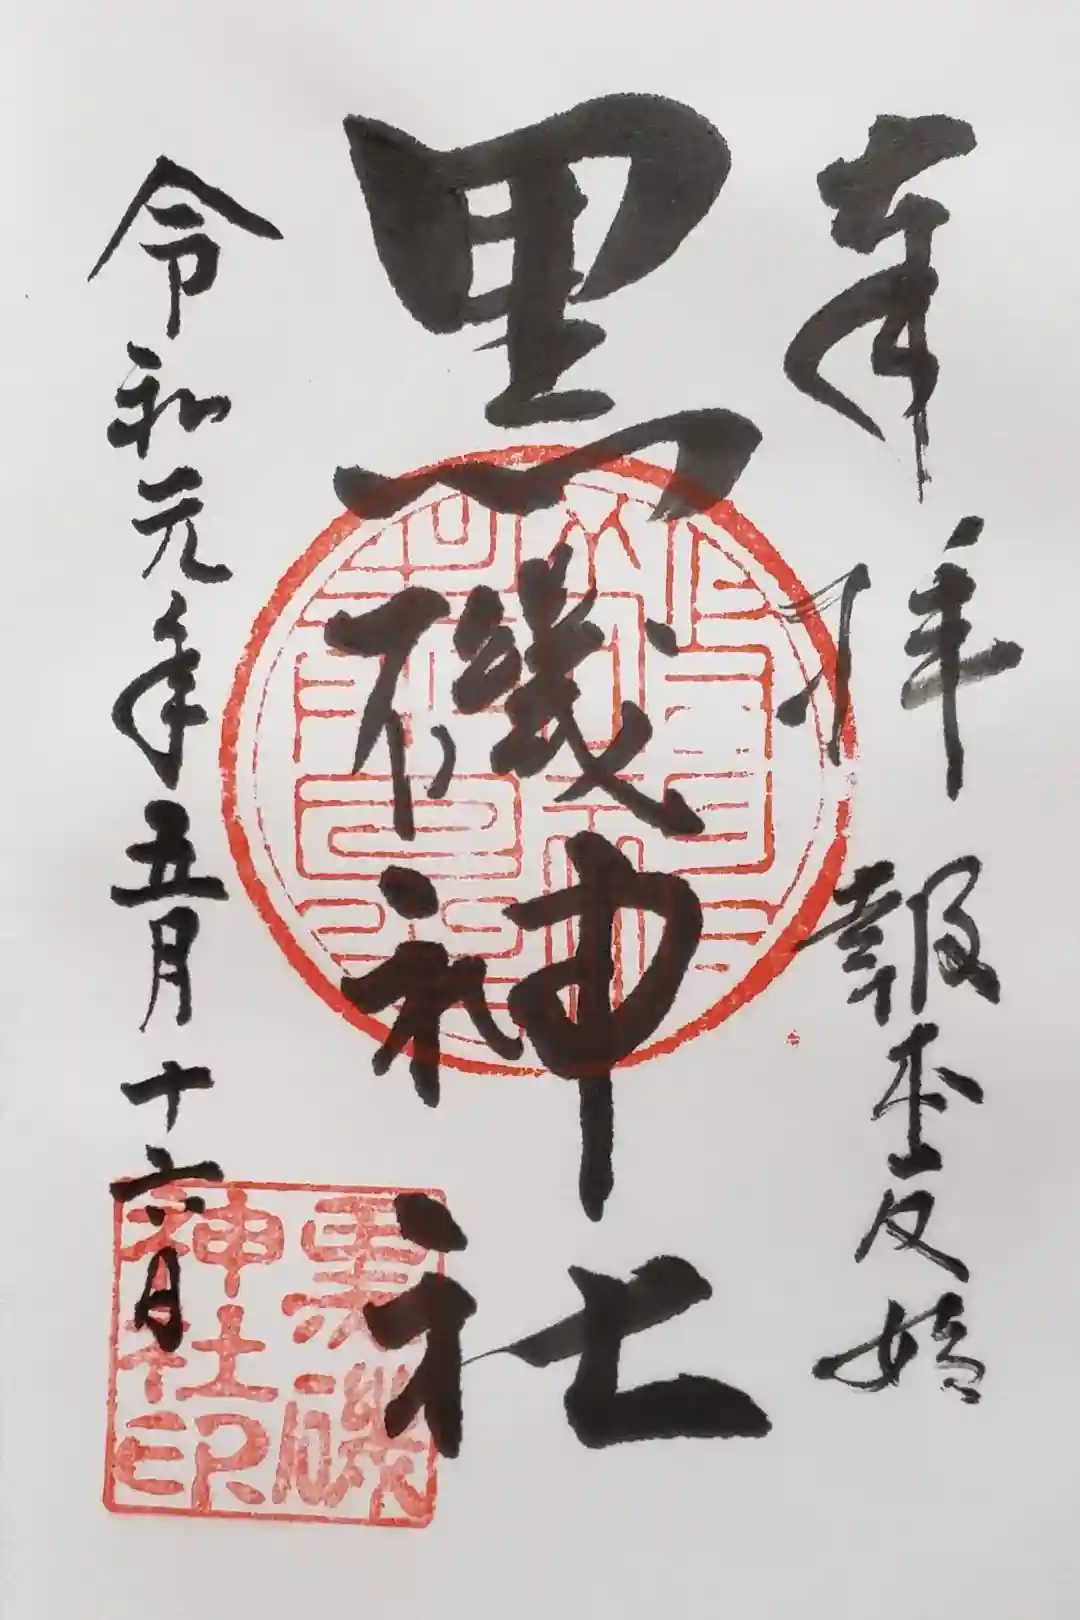 奉拝 報本反始
黒磯神社
令和元年五月十六日
黒磯
神社印